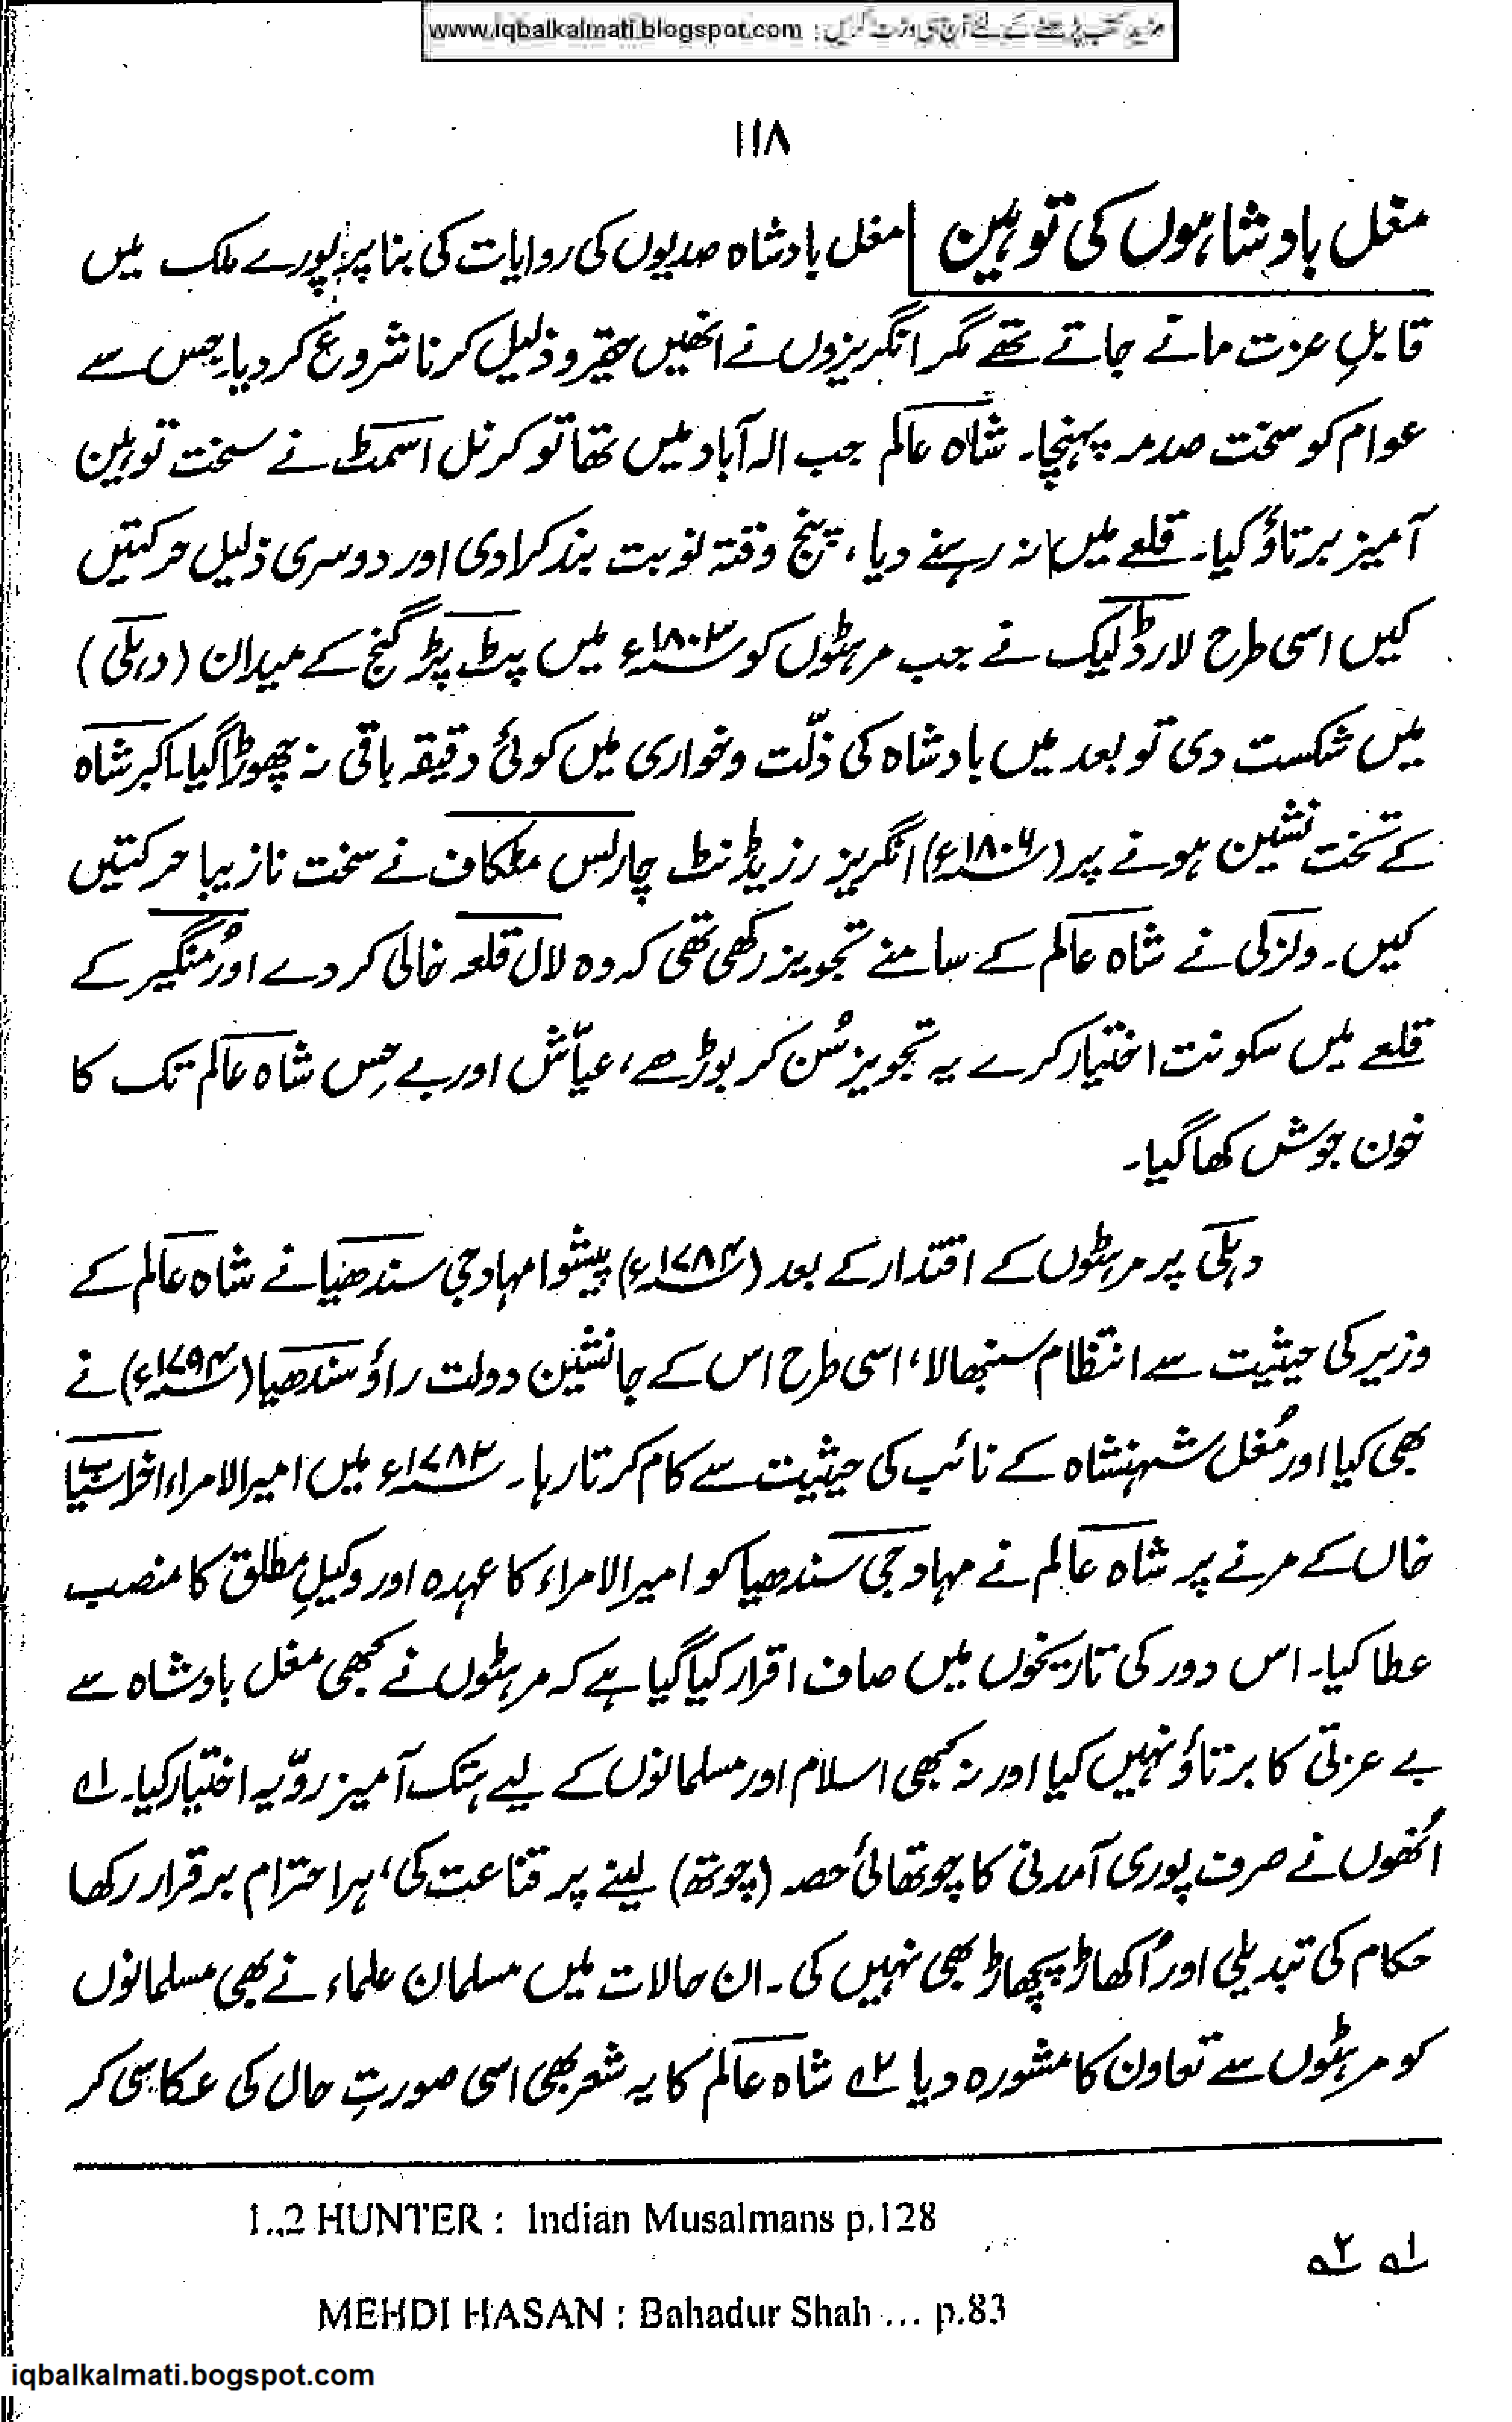 مزید کتب پڑھنے کے لئے آج ہی وزٹ کریں : www.iqbalkalmati.blogspot.com
۱۱۸
مغل بادشاہوں کی توہین مغل بادشاہ صدیوں کی روایات کی بنا پر پورے ملک میں
قابلِ عزت مانے جاتے تھے مگر انگریزوں نے انھیں حقیر و ذلیل کرنا شروع کر دیا، جس سے
عوام کو سخت صدمہ پہنچا۔ شاہ عالم جب الہ آباد میں تھا تو کرنل اسمٹ نے سخت توہین
آمیز برتاؤ کیا۔ قلعے میں نہ رہنے دیا، پنج وقتہ نوبت بند کرا دی اور دوسری ذلیل حرکتیں
کیں اسی طرح لارڈ لیک نے جب مرہٹوں کو ۱۸۰۳ء میں پٹ پڑ گنج کے میدان (دہلی)
میں شکست دی تو بعد میں بادشاہ کی ذلّت و خواری میں کوئی دقیقہ باقی نہ چھوڑا گیا۔ اکبر شاہ
کے تخت نشین ہونے پر (۱۸۰۶ء) انگریز رزیڈنٹ چارلس مٹکاف نے سخت نازیبا حرکتیں
کیں۔ ولزلی نے شاہ عالم کے سامنے تجویز رکھی تھی کہ وہ لال قلعہ خالی کر دے اور مُنگیر کے
قلعے میں سکونت اختیار کرے یہ تجویز سُن کر بوڑھے، عیّاش اور بے حِس شاہ عالم تک کا
خون جوش کھا گیا۔
دہلی پر مرہٹوں کے اقتدار کے بعد (۱۷۸۴ء) پیشوا مہادجی سندھیا نے شاہ عالم کے
وزیر کی حیثیت سے انتظام سنبھالا، اسی طرح اس کے جانشین دولت راؤ سندھیا (۱۷۹۴ء) نے
بھی کیا اور مُغل شہنشاہ کے نائب کی حیثیت سے کام کرتا رہا۔ ۱۷۸۳ء میں امیر الامراء افراسیاب
خاں کے مرنے پر شاہ عالم نے مہادجی سندھیا کو امیر الامراء کا عہدہ اور وکیلِ مطلق کا منصب
عطا کیا۔ اس دور کی تاریخوں میں صاف اقرار کیا گیا ہے کہ مرہٹوں نے کبھی مغل بادشاہ سے
بے عزتی کا برتاؤ نہیں کیا اور نہ کبھی اسلام اور مسلمانوں کے لیے ہتک آمیز رویّہ اختیار کیا۔ ۱؎
اُنھوں نے صرف پوری آمدنی کا چوتھائی حصہ (چوتھ) لینے پر قناعت کی، ہر احترام برقرار رکھا
حکام کی تبدیلی اور اُکھاڑ پچھاڑ بھی نہیں کی۔ ان حالات میں مسلمان علماء نے بھی مسلمانوں
کو مرہٹوں سے تعاون کا مشورہ دیا ۲؎ شاہ عالم کا یہ شعر بھی اسی صورتِ حال کی عکاسی کر
1..2 HUNTER : Indian Musalmans p.128
۱؎ ۲؎
MEHDI HASAN : Bahadur Shah ... p.83
iqbalkalmati.bogspot.com